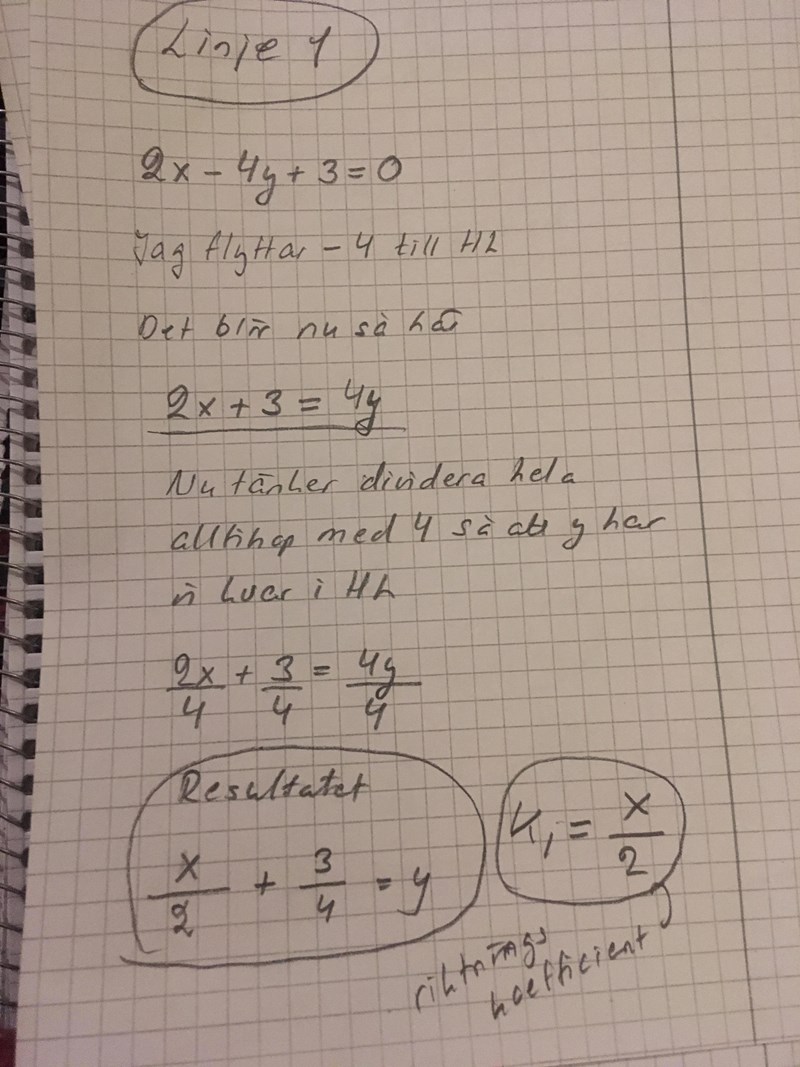 Linje 1
2x - 4y + 3 = 0
Jag flyttar - 4 till HL
Det blir nu så här
2x + 3 = 4y
Nu tänker dividera hela
alltihop med 4 så att y har
i HL
2x/4 + 3/4 = 4y/4
Resultatet
x/2 + 3/4 = y
K₁ = x/2
riktnings
koefficient